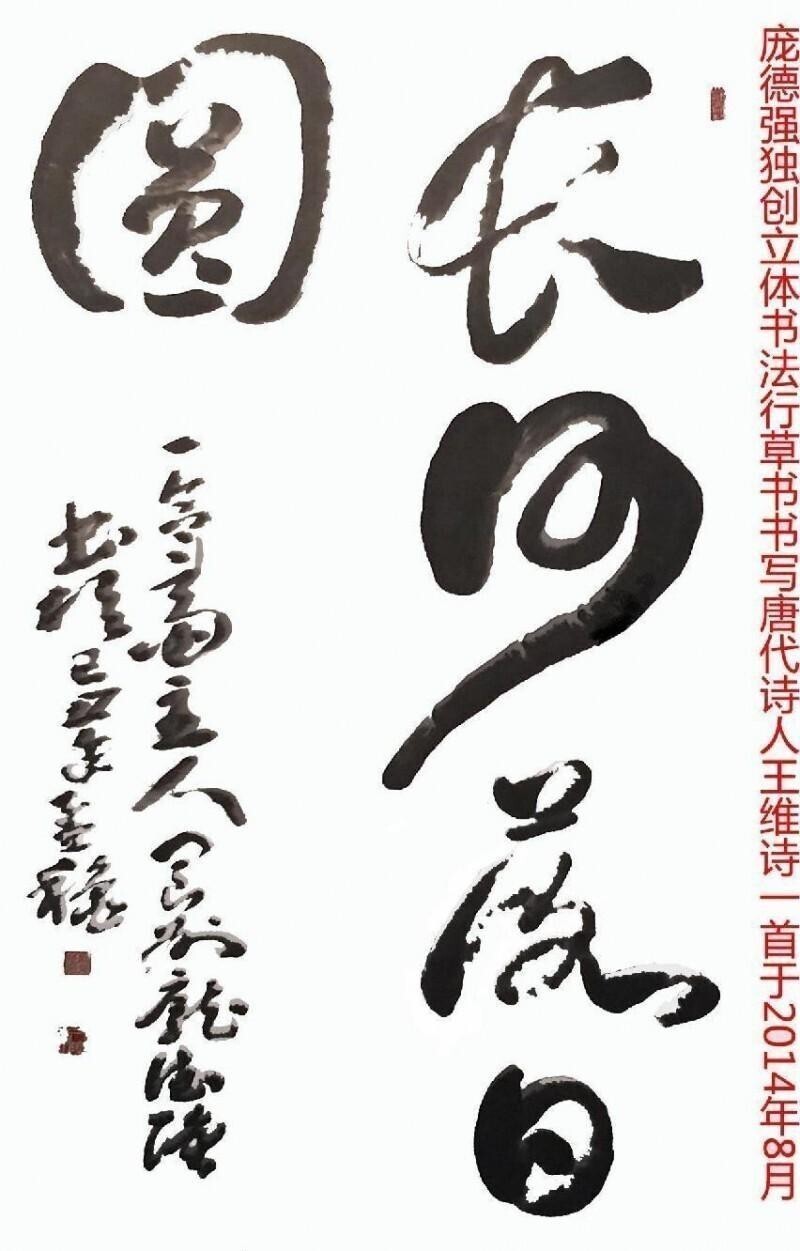 庞德强独创立体书法行草书书写唐代诗人王维诗一首于2014年8月
长河落日
圆
主人 龐德强
书 己丑年